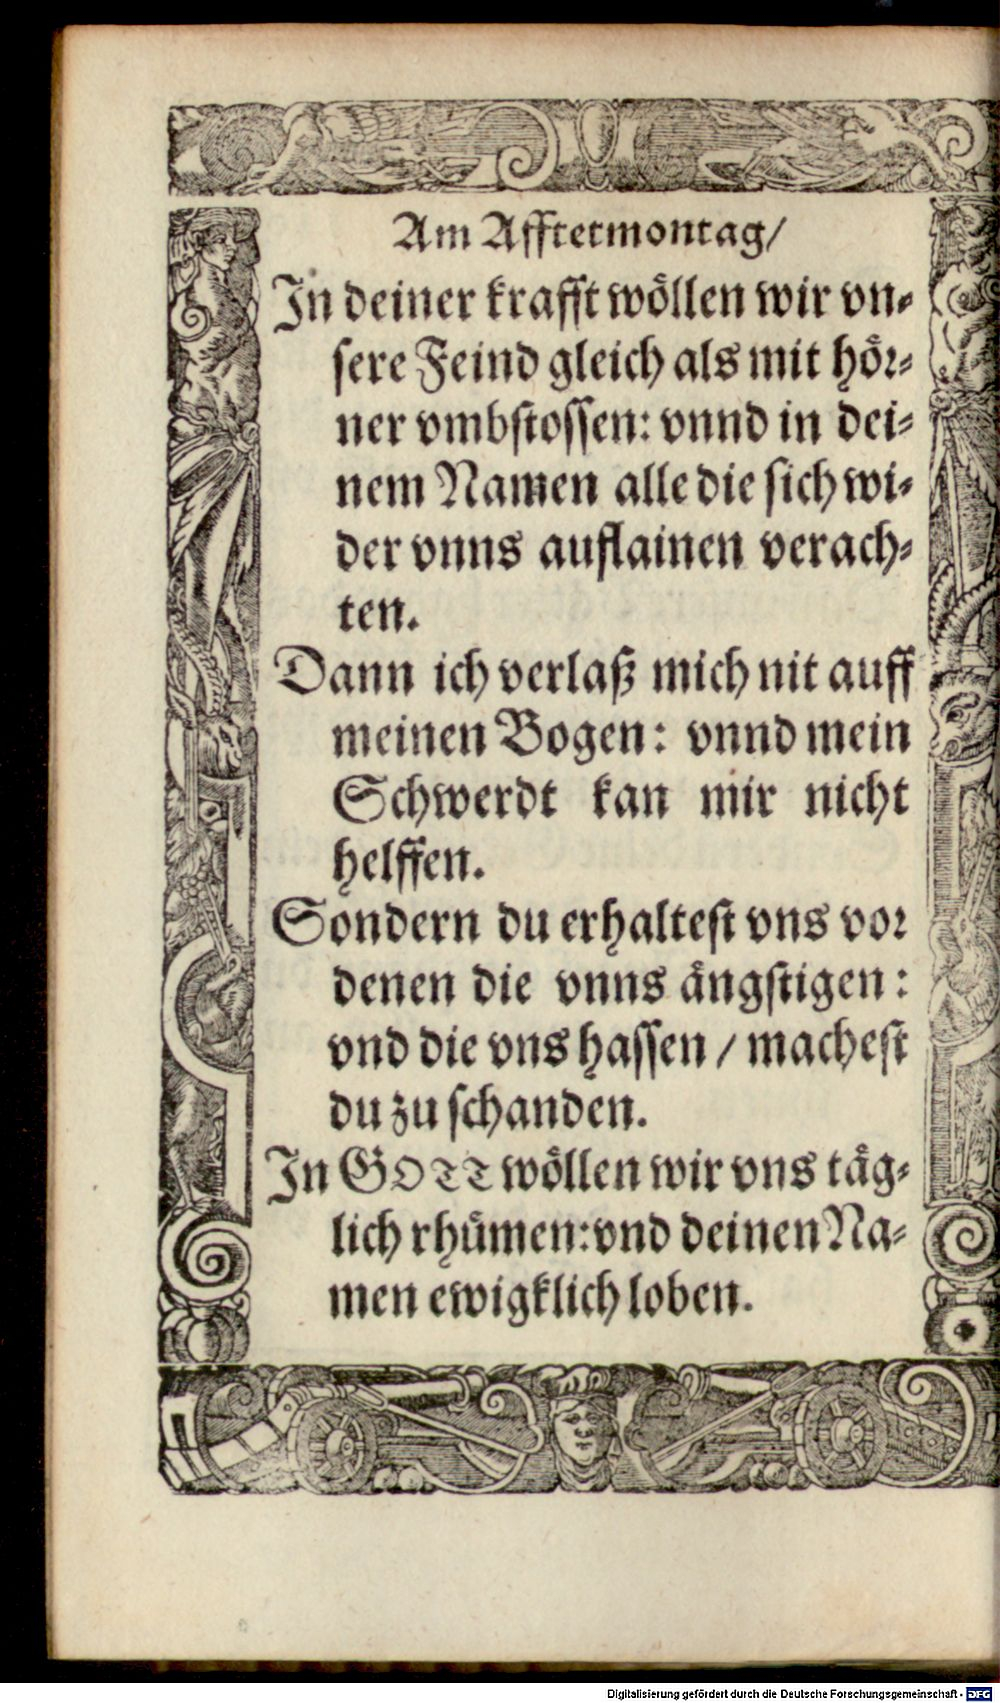 Am Affterмontag/
In deiner krafft wöllen wir vn⸗
sere Feind gleich als mit hör⸗
ner vmbstossen: vnnd in dei⸗
nem Namen alle die sich wi⸗
der vnns auflainen verach⸗
ten.
Dann ich verlaß mich nit auff
meinen Bogen: vnnd mein
Schwerdt kan mir nicht
helffen.
Sondern du erhaltest vns vor
denen die vnns ängstigen:
vnd die vns hassen / machest
du zu schanden.
In GOTT wöllen wir vns täg⸗
lich rhümen: vnd deinen Na⸗
men ewigklich loben.
Digitalisierung gefördert durch die Deutsche Forschungsgemeinschaft - DFG